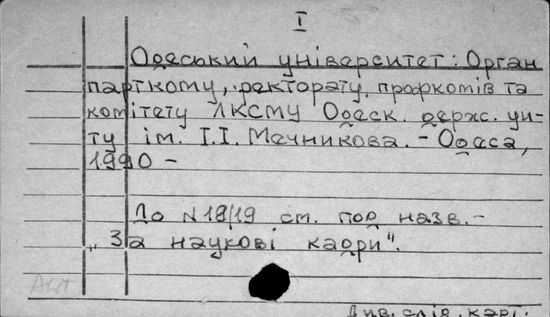 I
Одеський університет: Орган
парткому, ректорату, профкомів та
комітету ЛКСМУ Одеск. держ. уни-
ту ім. І.І. Мечникова. – Одеса,
1990 –
До N18/19 см. под назв. –
„За наукові кадри".
Див. слід. карт.